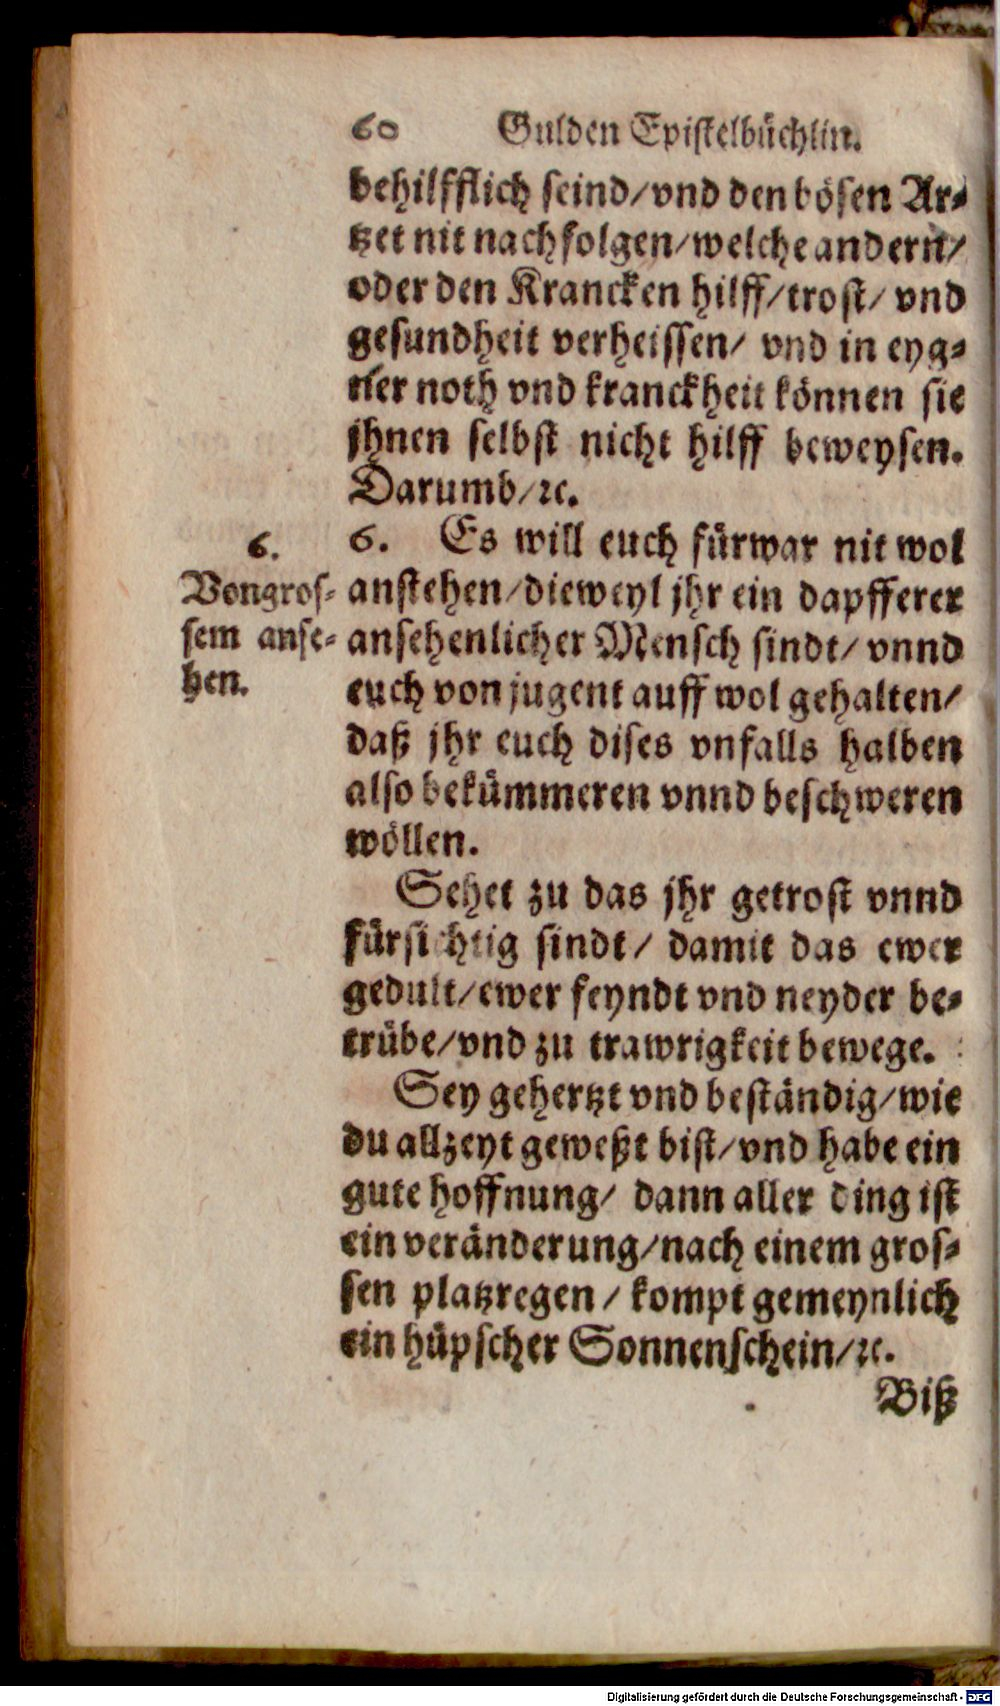 60 Gulden Epistelbüchlin.
behilfflich seind/vnd den bösen Ar-
tzet nit nachfolgen/welche andern/
oder den Krancken hilff/trost/ vnd
gesundheit verheissen/ vnd in eyg-
ner noth vnd kranckheit können sie
jhnen selbst nicht hilff beweysen.
Darumb/ꝛc.
6. Es will euch fürwar nit wol
anstehen/dieweyl jhr ein dapfferer
ansehenlicher Mensch sindt/ vnnd
euch von jugent auff wol gehalten/
daß jhr euch dises vnfalls halben
also bekümmeren vnnd beschweren
wöllen.
6.
Von gros-
sem anse-
hen.
Sehet zu das jhr getrost vnnd
fürsichtig sindt/ damit das ewer
gedult/ewer feyndt vnd neyder be-
trübe/vnd zu trawrigkeit bewege.
Sey gehertzt vnd beständig/wie
du allzeyt geweßt bist/vnd habe ein
gute hoffnung/ dann aller ding ist
ein veränderung/nach einem gros-
sen platzregen/ kompt gemeynlich
ein hüpscher Sonnenschein/ꝛc.
Biß
Digitalisierung gefördert durch die Deutsche Forschungsgemeinschaft - DFG